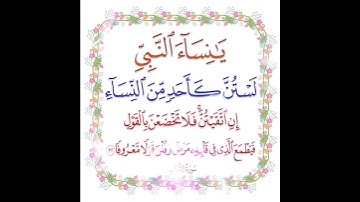 يَـٰنِسَآءَ ٱلنَّبِيِّ
لَسْتُنَّ كَأَحَدٍ مِّنَ ٱلنِّسَآءِ
إِنِ ٱتَّقَيْتُنَّ ۚ فَلَا تَخْضَعْنَ بِٱلْقَوْلِ
فَيَطْمَعَ ٱلَّذِى فِى قَلْبِهِۦ مَرَضٌ وَقُلْنَ قَوْلًا مَّعْرُوفًا ٣٢
سورة